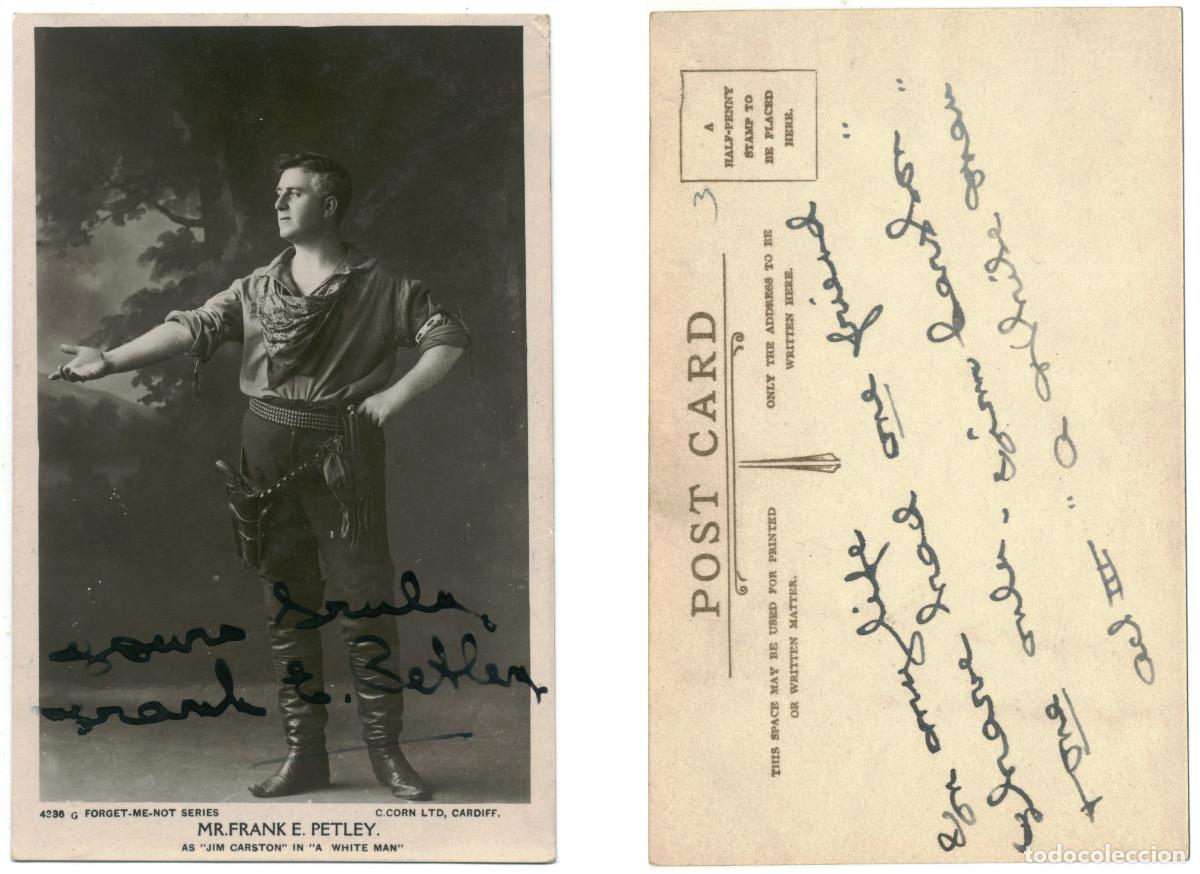 yours truly
Frank E. Petley
4236 G FORGET-ME-NOT SERIES
C.CORN LTD, CARDIFF.
MR.FRANK E. PETLEY.
AS "JIM CARSTON" IN "A WHITE MAN"
POST CARD
A
HALF-PENNY
STAMP TO
BE PLACED
HERE.
THIS SPACE MAY BE USED FOR PRINTED
OR WRITTEN MATTER.
ONLY THE ADDRESS TO BE
WRITTEN HERE.
3
my life
had one friend "
- Jim Carston "
" A White Man
act III
todocoleccion